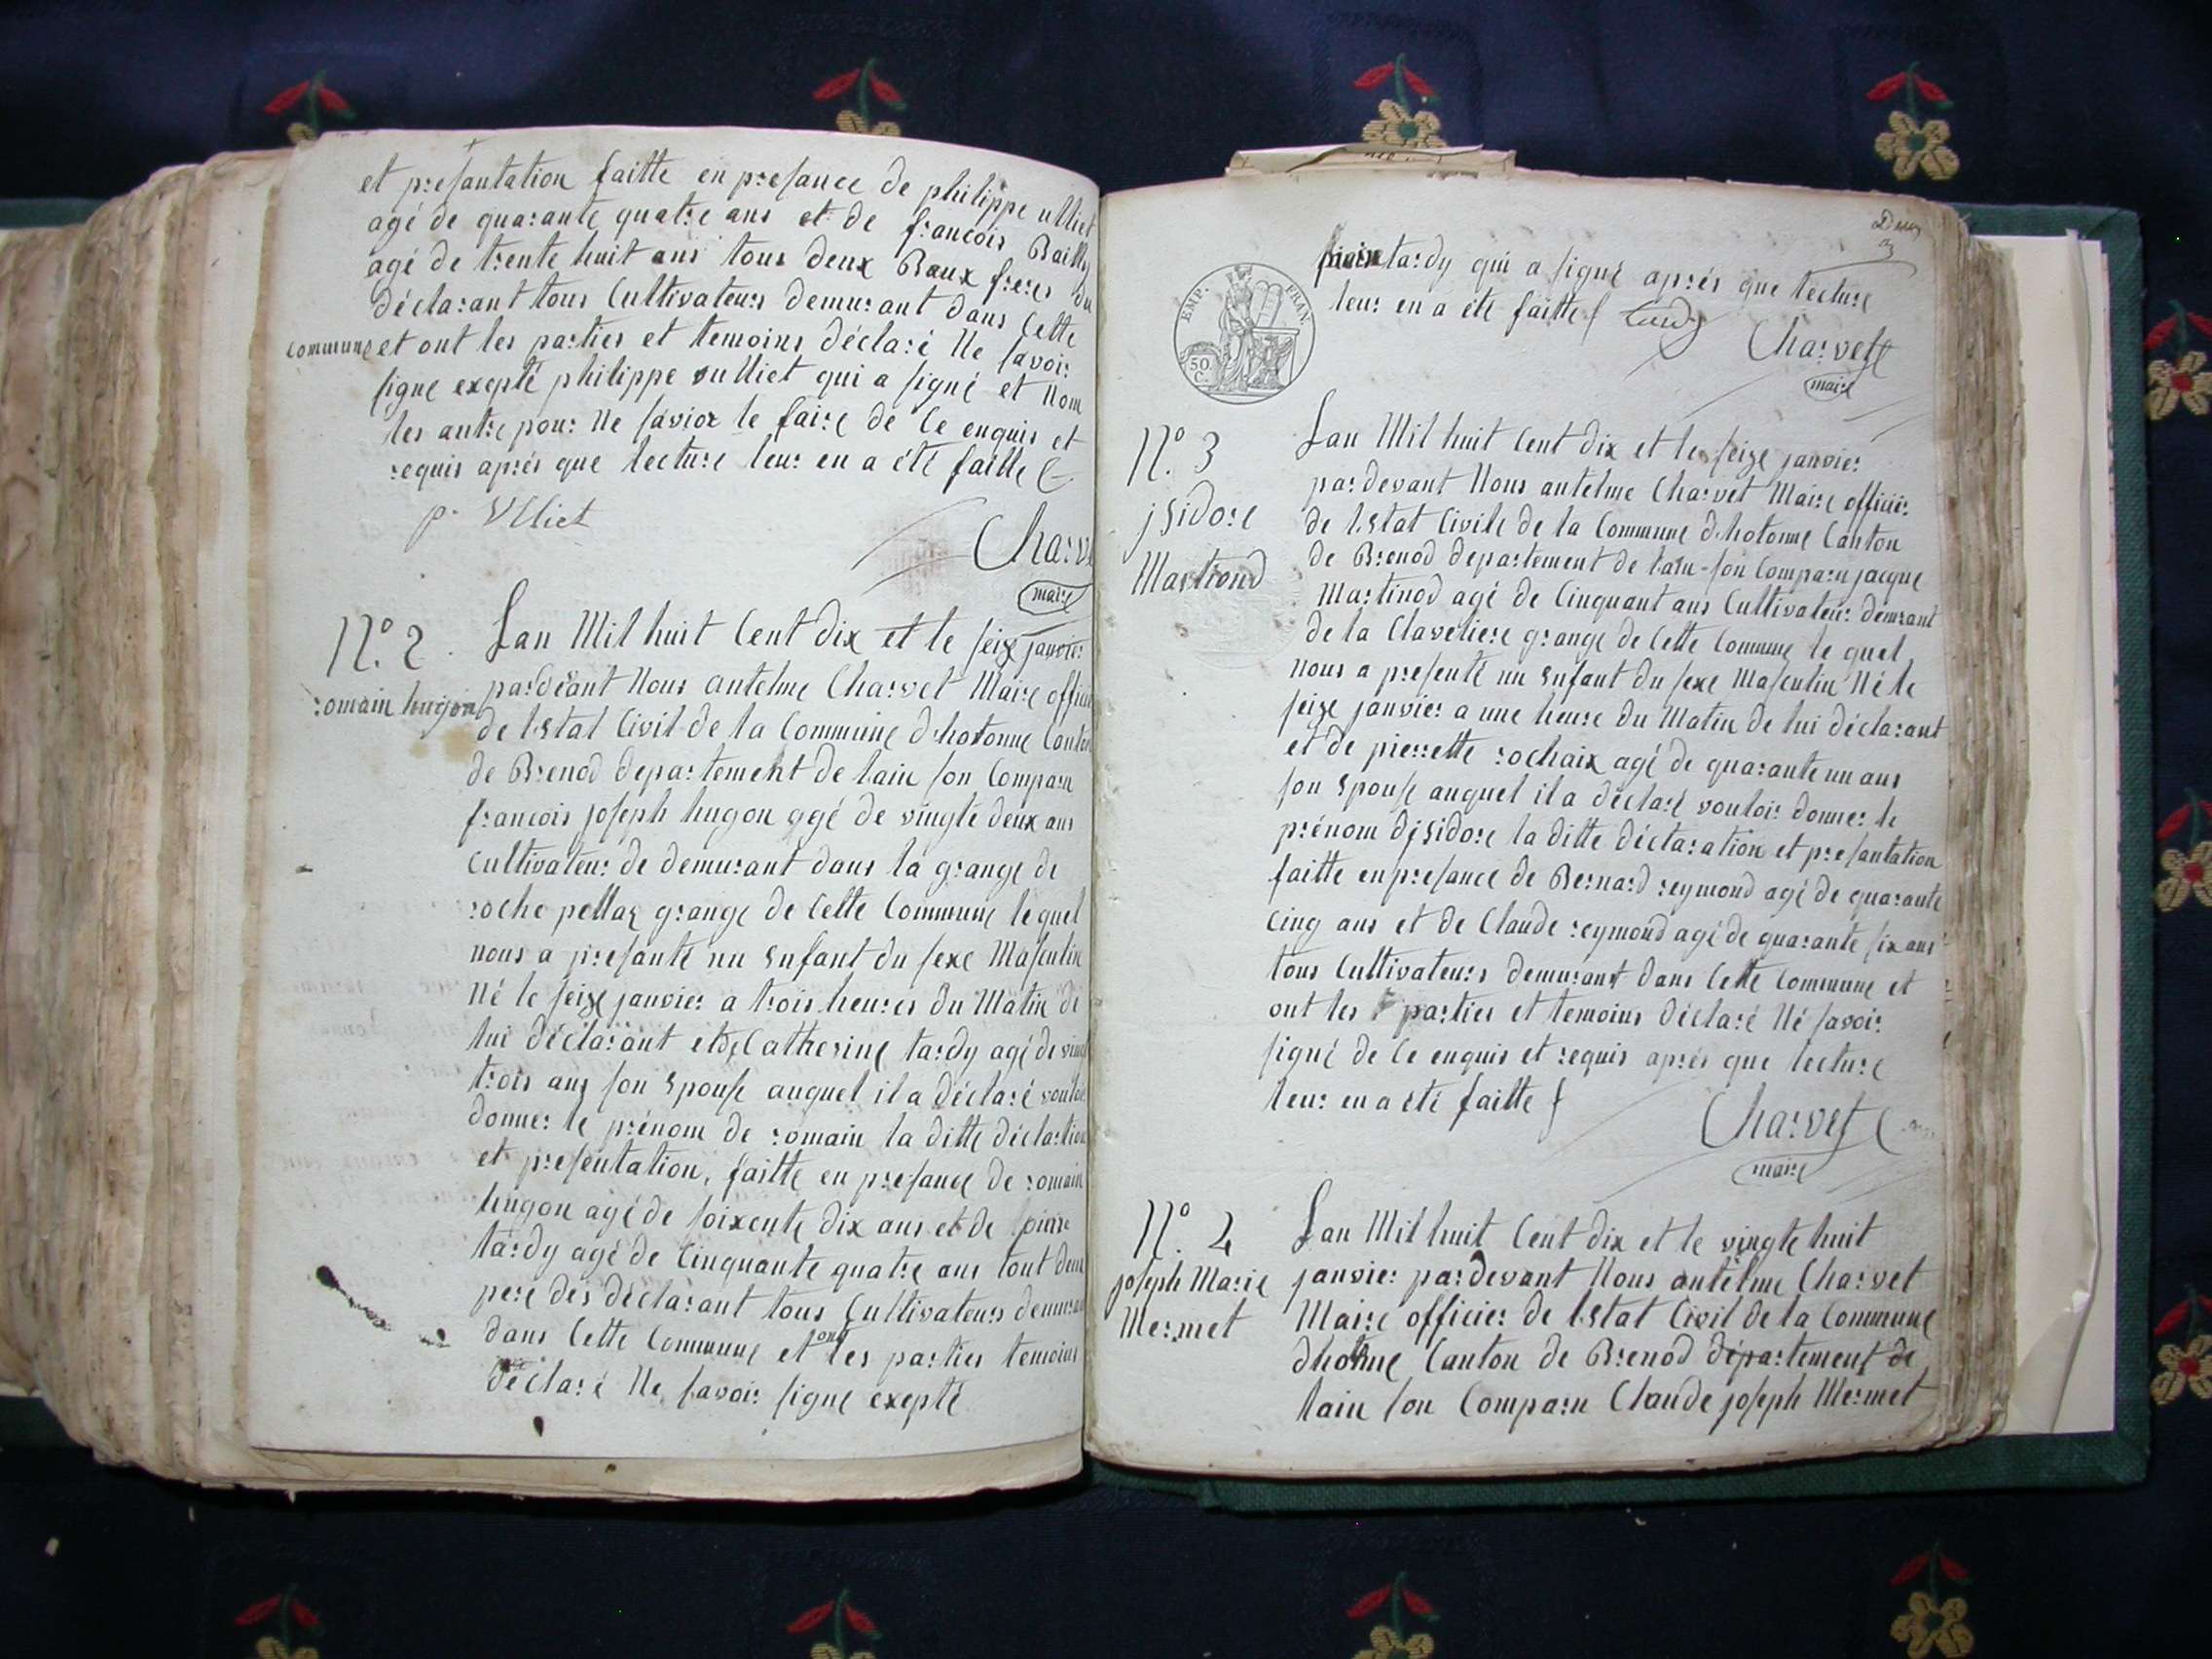 et presantation faitte en presance de philippe ulliet
agé de quarante quatre ans et de francois Bailly
agé de trente huit ans tous deux Baux freres du
déclarant tous Cultivateurs demurant dans Cette
commune et ont les parties et temoins déclaré Ne savoir
signe exepté philippe sulliet qui a signé et Nom
les autre pour Ne savior le faire de Ce enquis et
requis aprés que lecture leur en a été faitte
p. Ulliet
Charve
maire
N.° 2.
romain hugon
Lan Mil huit Cent dix et le seize janvier
pardeant Nous antelme Charvet Maire officie
de lEstat Civil de la Commune dhotonne Canton
de Brenod departement de lain son Comparu
francois joseph hugon agé de vingte deux ans
Cultivateur de demurant dans la grange de
roche pellaz grange de Cette Commune lequel
nous a presanté un Enfant du sexe Masculin
Né le seize janvier a trois heures du Matin de
lui déclarant et de Catherine tardy agé de vingt
trois ans son Epouse auquel il a déclaré vouloir
donner le prénom de romain la ditte déclartion
et presentation, faitte en presance de romain
hugon agé de soixente dix ans et de pierre
tardy agé de Cinquante quatre ans tout deux
pere des déclarant tous Cultivateurs demurant
dans Cette Commune et ont les parties temoins
déclaré Ne savoir signe exepté
Deux
3
EMP. FRAN.
50. C.
tardy qui a signé aprés que lecture
leur en a été faitte tardy
Charvet
maire
N.° 3
jsidore
Martiond
Lan Mil huit Cent dix et le seize janvier
pardevant Nous antelme Charvet Maire officier
de lEstat Civile de la Commune dhotonne Canton
de Brenod departement de lain son Comparu jacque
Martinod agé de Cinquant ans Cultivateur demrant
de la Claveliere grange de Cette Commune le quel
nous a presenté un Enfant du sexe Masculin Né le
seize janvier a une heure du Matin de lui déclarant
et de pierrette rochaix agé de quarante un ans
son Epouse auquel il a déclaré vouloir donner le
prénom djsidore la ditte déclaration et presantation
faitte en presance de Bernard reymond agé de quarante
Cinq ans et de Claude reymond agé de quarante six ans
tous Cultivateurs demurant dans Cette Commune et
ont les parties et temoins déclaré Né savoir
signé de Ce enquis et requis aprés que lecture
leur en a été faitte
Charvet
maire
N.° 4
joseph Marie
Mermet
Lan Mil huit Cent dix et le vingte huit
janvier pardevant Nous antelme Charvet
Maire officier de lEstat Civil de la Commune
dhotne Canton de Brenod département de
lain son Comparu Claude joseph Mermet